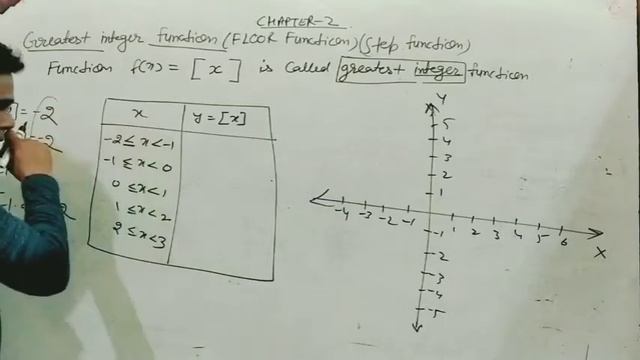 CHAPTER-2
Greatest integer function (FLOOR Function) (Step function)
Function f(x) = [x] is called greatest integer function
= -2
-2
x y = [x]
-2 ≤ x < -1
-1 ≤ x < 0
0 ≤ x < 1
1 ≤ x < 2
2 ≤ x < 3
Y
5
4
3
2
1
-4 -3 -2 -1 1 2 3 4 5 6
X
-1
-2
-3
-4
-5